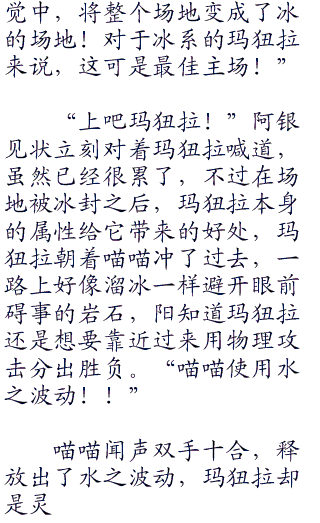 觉中，将整个场地变成了冰
的场地！对于冰系的玛狃拉
来说，这可是最佳主场！”
“上吧玛狃拉！”阿银
见状立刻对着玛狃拉喊道，
虽然已经很累了，不过在场
地被冰封之后，玛狃拉本身
的属性给它带来的好处，玛
狃拉朝着喵喵冲了过去，一
路上好像溜冰一样避开眼前
碍事的岩石，阳知道玛狃拉
还是想要靠近过来用物理攻
去分出胜负。“喵喵使用水
之波动！！”
喵喵闻声双手十合，释
放出了水之波动，玛狃拉却
是灵